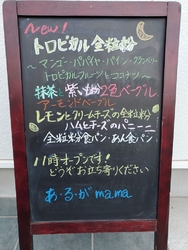 New!
トロピカル全粒粉
〜マンゴー・パパイヤ・パイン・クランベリー
トロピカルフルーツとココナツ〜
抹茶と紫いもの2色ベーグル
アーモンドベーグル
レモンとクリームチーズの全粒粉
ハムとチーズのパニーニ
全粒粉食パン・あん食パン
11時オープンです!
どうぞお立ち寄りください
あ・る・が mama